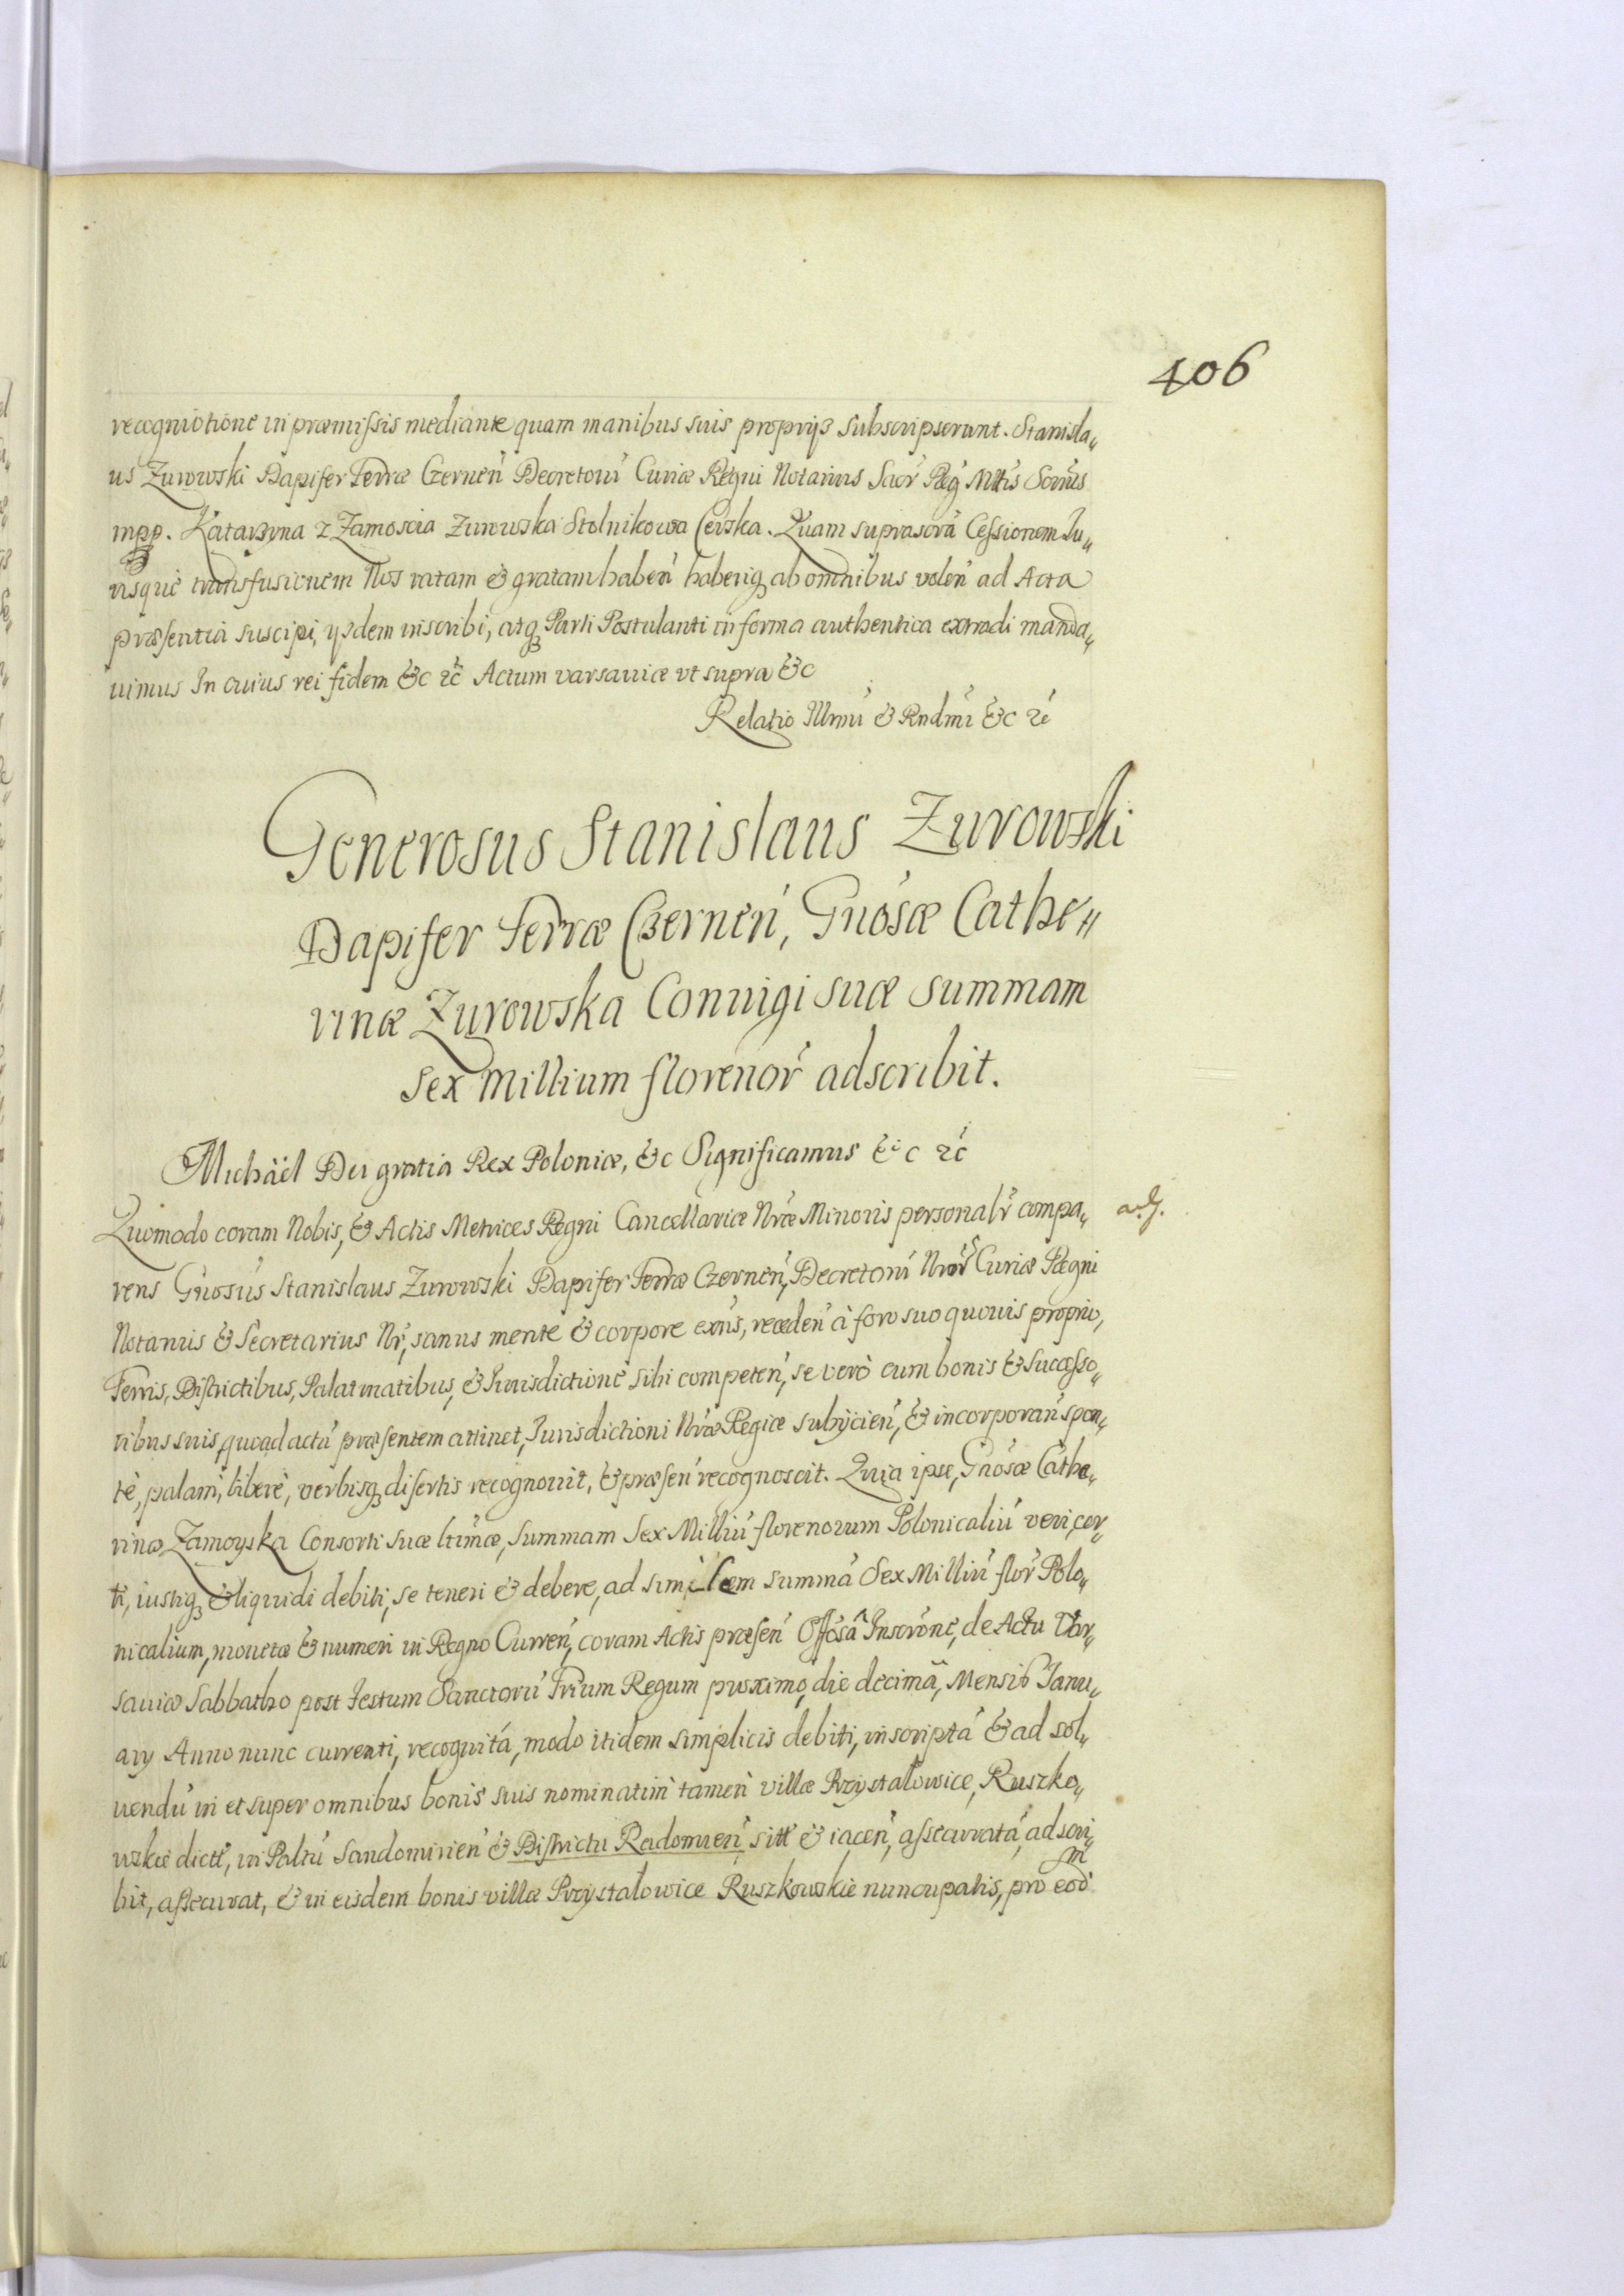 406
recognitione in præmissis mediante quam manibus suis proprijs subscripserunt. Stanisla„
us Zurowski Dapifer Terræ Czerneń Decretorú Curiæ Regni Notarius Sacŕ Reg Mttis Secrius
mpp. Katarzyna z Zamoscia Zurowska Stolnikowa Cerska. Quam suprascrã Cessionem Iu„
risquè transfusionem Nos ratam & gratam habeń haberiq ab omnibus voleń ad Acta
præsentia suscipi, ysdem inscribi, atq Parti Postulanti in forma authentica extradi manda„
uimus In cuius rei fidem &c ꝛc Actum varsauiæ vt supra &c
Relatio Illmi & Rndmi &c ꝛc
Generosus Stanislaus Zurowski
Dapifer Terræ Czerneń, Gnosæ Cathe„
rinæ Zurowska Coniugi suæ summam
sex Millium florenoŕ adscribit.
Michaël Dei gratia Rex Poloniæ, &c Significamus &c ꝛc
Quomodo coram Nobis, & Actis Metrices Regni Cancellariæ Nræ Minoris personalr compa„
rens Gnosus Stanislaus Zurowski Dapifer Terræ Czerneń, Decretorú Nror Curiæ Regni
Notarius & Secretarius Nr, sanus mente & corpore exns, recedeń à foro suo quouis proprio,
Terris, Districtibus, Palatinatibus, & Iurisdictionè sibi competeń, se verò cum bonis & Successo„
ribus suis, quoad actú præsentem attinet, Iurisdictioni Nræ Regiæ subijcień, & incorporań spon„
tè, palam, liberè, verbisq disertis recognouit, & præseń recognoscit. Quia ipse, Gnosæ Cathe„
rinæ Zamoyska Consorti suæ ltimæ, summam Sex Milliú florenorum Polonicaliú veri, cer„
ti, iustiq & liquidi debiti, se teneri & debere, ad similem summã Sex Milliú floŕ Polo„
nicalium, monetæ & numeri in Regno Curreń, coram Actis præseń Offosâ Inscronè, de Actu Var„
sauiæ Sabbatho post Festum Sanctorú Trium Regum proximo, die decimâ, Mensis Ianu„
arij Anno nunc currenti, recognitá, modo itidem simplicis debiti, inscriptá & ad sol„
uendú in et super omnibus bonis suis nominatim tamen villæ Przystalowice, Ruszko„
wskie dictt, in Paltú Sandomirień & Districtu Radomień sitt & iaceń, assecuratá, adscri„
bit, assecurat, & in eisdem bonis villæ Przystalowice Ruszkowskie nuncupatis, pro eod
m